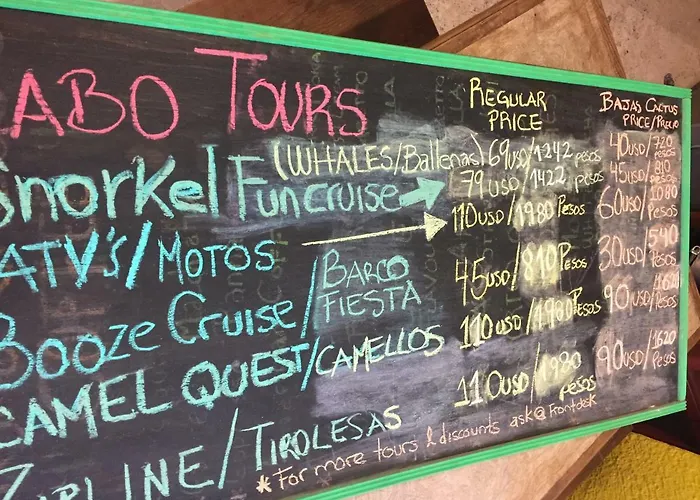 ABO TOURS
REGULAR PRICE
BAJAS CACTUS PRICE/PRECIO
(WHALES/Ballenas) 69USD/1242 pesos 40USD/720 pesos
Snorkel Funcruise → 79USD/1422 pesos 45USD/810 pesos
ATV's/MOTOS → 110USD/1980 Pesos 60USD/1080 Pesos
Booze Cruise/BARCO FIESTA 45USD/810 Pesos 30USD/540 Pesos
CAMEL QUEST/CAMELLOS 110USD/1980 Pesos 90USD/1620 Pesos
ZIPLINE/TIROLESAS 110USD/1980 pesos 90USD/1620 Pesos
*For more tours & discounts ask@Frontdesk